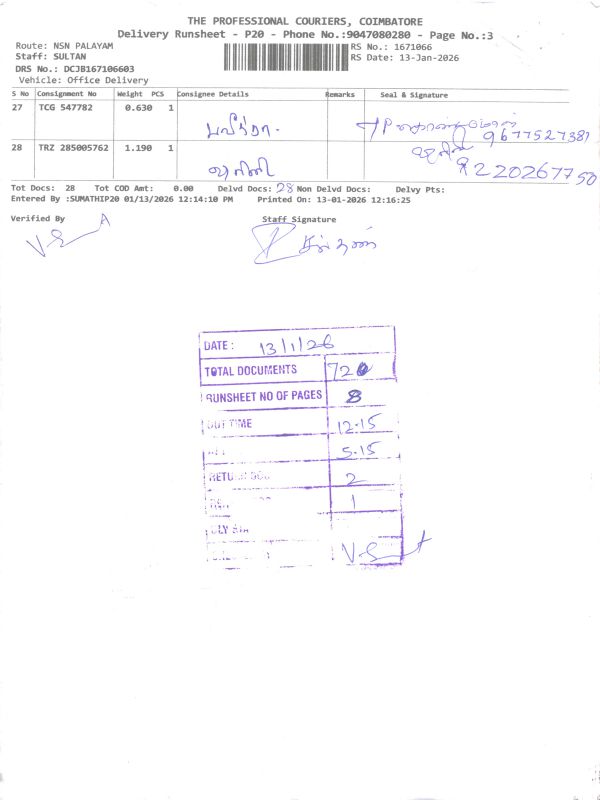 THE PROFESSIONAL COURIERS, COIMBATORE
Delivery Runsheet - P20 - Phone No.:9047080280 - Page No.:3
Route: NSN PALAYAM
Staff: SULTAN
DRS No.: DCJB167106603
Vehicle: Office Delivery
RS No.: 1671066
RS Date: 13-Jan-2026
S No Consignment No Weight PCS Consignee Details Remarks Seal & Signature
27 TCG 547782 0.630 1 பவித்ரா. 9677527381
28 TRZ 285005762 1.190 1 9220267750
Tot Docs: 28 Tot COD Amt: 0.00 Delvd Docs: 28 Non Delvd Docs: Delvy Pts:
Entered By :SUMATHIP20 01/13/2026 12:14:10 PM Printed On: 13-01-2026 12:16:25
Verified By Staff Signature
DATE : 13/1/26
TOTAL DOCUMENTS 720
RUNSHEET NO OF PAGES 8
OUT TIME 12.15
5.15
2
1